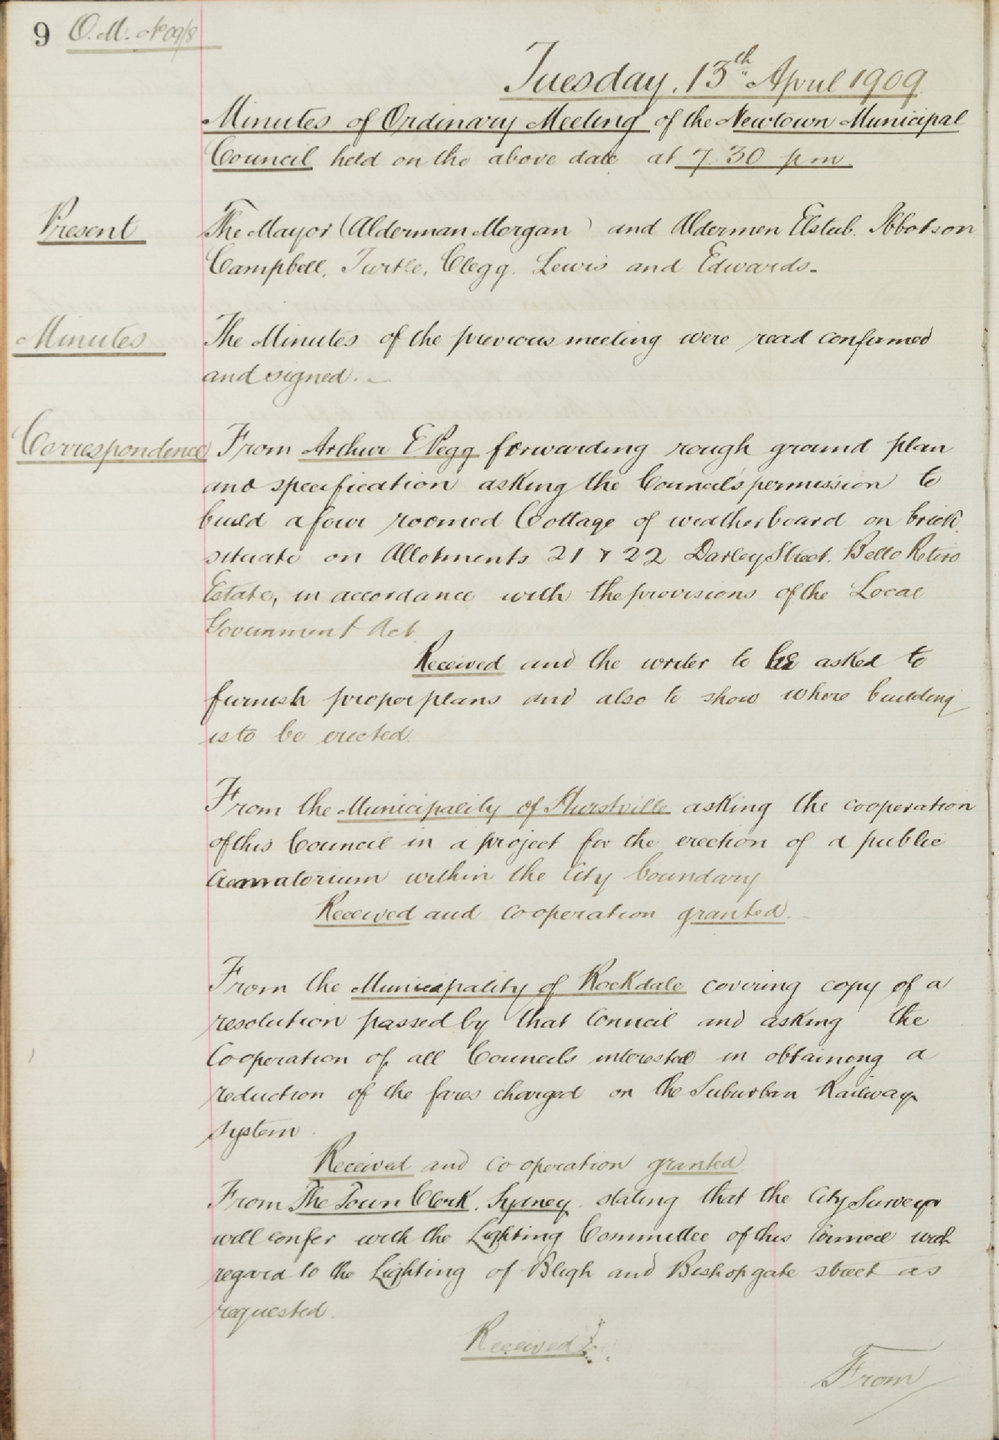 9 O.M. No 09/8
Tuesday, 13th April 1909
Minutes of Ordinary Meeting of the Newtown Municipal
Council held on the above date at 7.30 pm
Present
The Mayor (Alderman Morgan) and Aldermen Elstub. Ibbotson
Campbell, Turtle, Clegg. Lewis and Edwards.
Minutes
The Minutes of the previous meeting were read confirmed
and signed.
Correspondence
From Arthur E Pegg forwarding rough ground plan
and specification asking the Council's permission to
build a four roomed Cottage of weatherboard on brick
situate on Allotments 21 & 22 Darley Street. Bello Retiro
Estate, in accordance with the provisions of the Local
Government Act.
Received and the writer to be asked to
furnish proper plans and also to show where building
is to be erected.
From the Municipality of Hurstville asking the cooperation
of this Council in a project for the erection of a public
crematorium within the City boundary
Received and cooperation granted.
From the Municipality of Rockdale covering copy of a
resolution passed by that Council and asking the
Cooperation of all Councils interested in obtaining a
reduction of the fares charged on the Suburban Railway
system.
Received and cooperation granted
From The Town Clerk, Sydney. stating that the City Surveyor
will confer with the Lighting Committee of this Council with
regard to the Lighting of Bligh and Bishopgate street as
requested.
Received
From